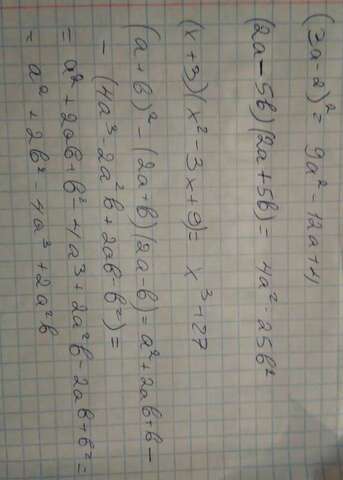 (3a-2)² = 9a² - 12a + 4
(2a - 5b)(2a + 5b) = 4a² - 25b²
(x + 3)(x² - 3x + 9) = x³ + 27
(a + b)² - (2a + b)(2a - b) = a² + 2ab + b -
- (4a³ - 2a²b + 2ab - b²) =
= a² + 2ab + b² + 4a³ + 2a²b - 2ab + b² =
= a² + 2b² - 4a³ + 2a²b